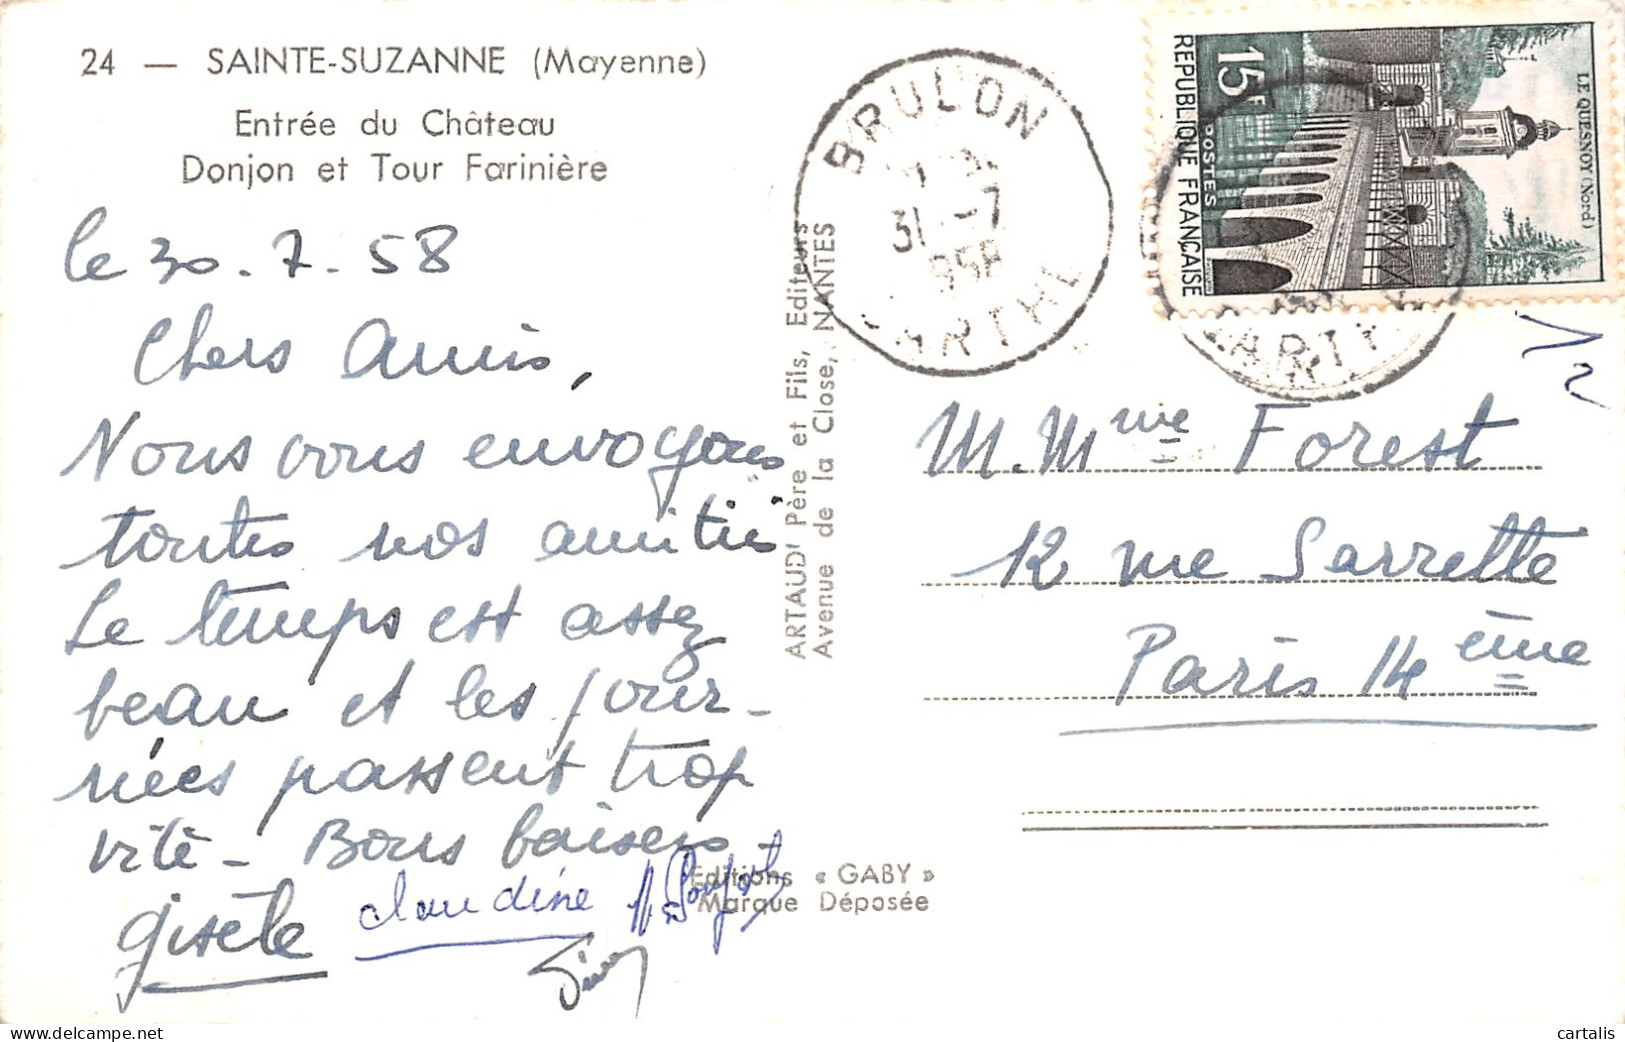 24 — SAINTE-SUZANNE (Mayenne)
Entrée du Château
Donjon et Tour Farinière
le 30-7-58
Chers Amis,
Nous vous envoyons
toutes nos amitiés
Le temps est assez
beau et les jour-
nées passent trop
vite - Bons baisers -
gisèle claudine
ARTAUD Père et Fils, Editeurs
Avenue de la Close, NANTES
Editions « GABY »
Marque Déposée
BRULON
31-7
1958
SARTHE
REPUBLIQUE FRANÇAISE
15F
POSTES
LE QUESNOY (Nord)
M. Mme Forest
12 rue Sarrette
Paris 14ème
cartalis